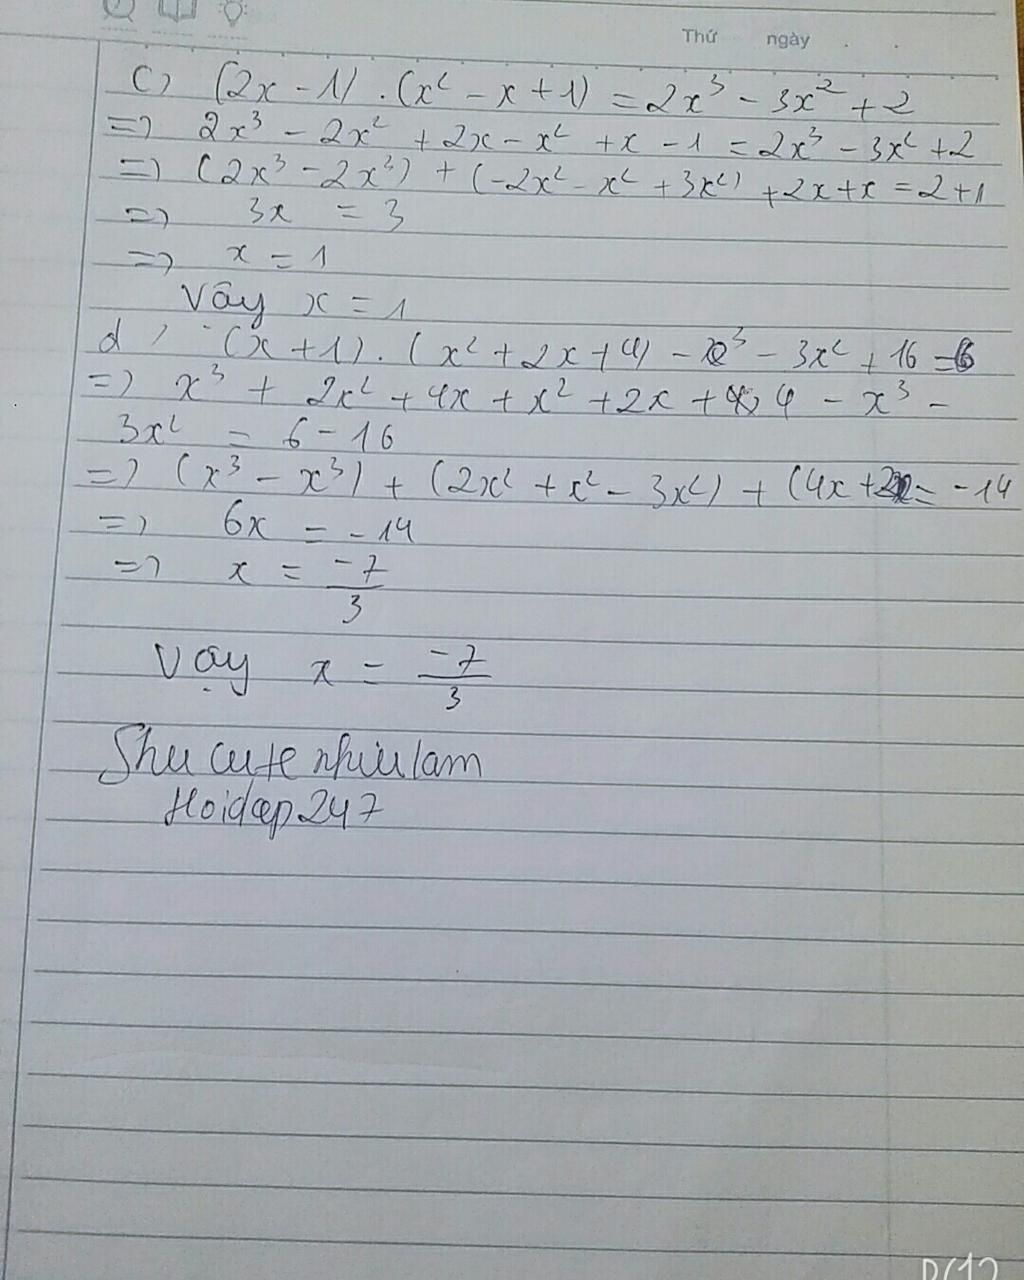 Thứ ngày . .
c) (2x - 1) . (x² - x + 1) = 2x³ - 3x² + 2
=> 2x³ - 2x² + 2x - x² + x - 1 = 2x³ - 3x² + 2
=> (2x³ - 2x³) + (-2x² - x² + 3x²) + 2x + x = 2 + 1
=> 3x = 3
=> x = 1
Vây x = 1
d, (x + 1) . (x² + 2x + 4) - x³ - 3x² + 16 = 6
=> x³ + 2x² + 4x + x² + 2x + 4 - x³ -
3x² = 6 - 16
=> (x³ - x³) + (2x² + x² - 3x²) + (4x + 2x = -14
=> 6x = -14
=> x = -7/3
Vậy x = -7/3
Shu cute nhiulam
Hoidap247